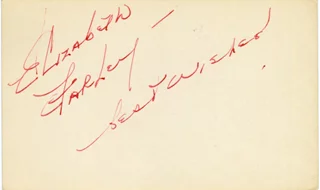 Elizabeth —
Farley
Best Wishes